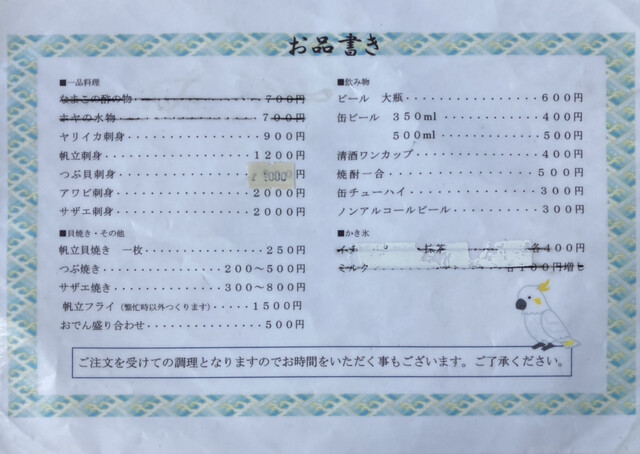 お品書き
■一品料理
なまこの酢の物 ・・・・・・・・・・ 700円
ホヤの水物 ・・・・・・・・・・ 700円
ヤリイカ刺身 ・・・・・・・・・・ 900円
帆立刺身 ・・・・・・・・・・ 1200円
つぶ貝刺身 ・・・・・・・・・・ 1000円
アワビ刺身 ・・・・・・・・・・ 2000円
サザエ刺身 ・・・・・・・・・・ 2000円
■貝焼き・その他
帆立貝焼き 一枚 ・・・・・・・・・・ 250円
つぶ焼き ・・・・・・・・・・ 200～500円
サザエ焼き ・・・・・・・・・・ 300～800円
帆立フライ（繁忙時以外つくります）・・・・ 1500円
おでん盛り合わせ ・・・・・・・・・・ 500円
■飲み物
ビール 大瓶 ・・・・・・・・・・ 600円
缶ビール 350ml ・・・・・・・・・・ 400円
500ml ・・・・・・・・・・ 500円
清酒ワンカップ ・・・・・・・・・・ 400円
焼酎一合 ・・・・・・・・・・ 500円
缶チューハイ ・・・・・・・・・・ 300円
ノンアルコールビール ・・・・・・・・・・ 300円
■かき氷
イチ 抹茶 各400円
ミルク 100円増し
ご注文を受けての調理となりますのでお時間をいただく事もございます。ご了承ください。